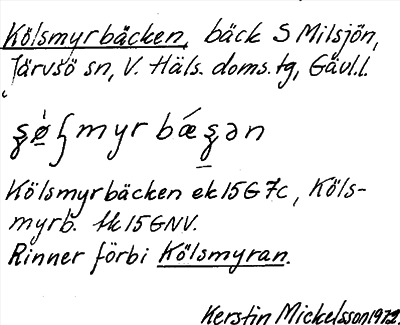 Kölsmyrbäcken, bäck S Milsjön,
Järvsö sn, V. Häls. doms.tg, Gävl.l.
Kölsmyrbäcken ek 15G 7c, Köls-
myrb. tk 15 GNV.
Rinner förbi Kölsmyran.
Kerstin Mickelsson 1972.